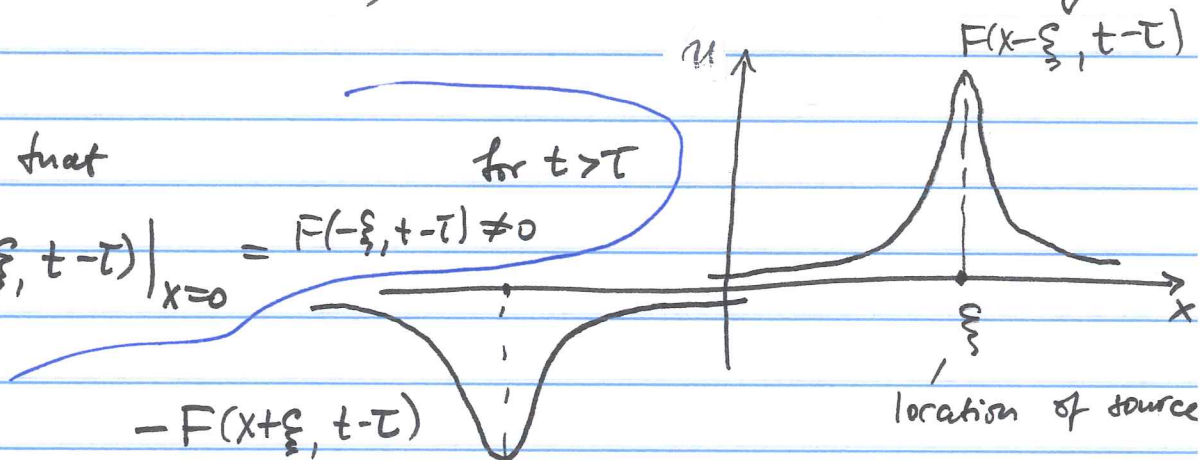 u
F(x-ξ, t-τ)
that for t>τ
ξ, t-τ)|x=0 = F(-ξ, t-τ) ≠0
x
ξ
-F(x+ξ, t-τ)
location of source